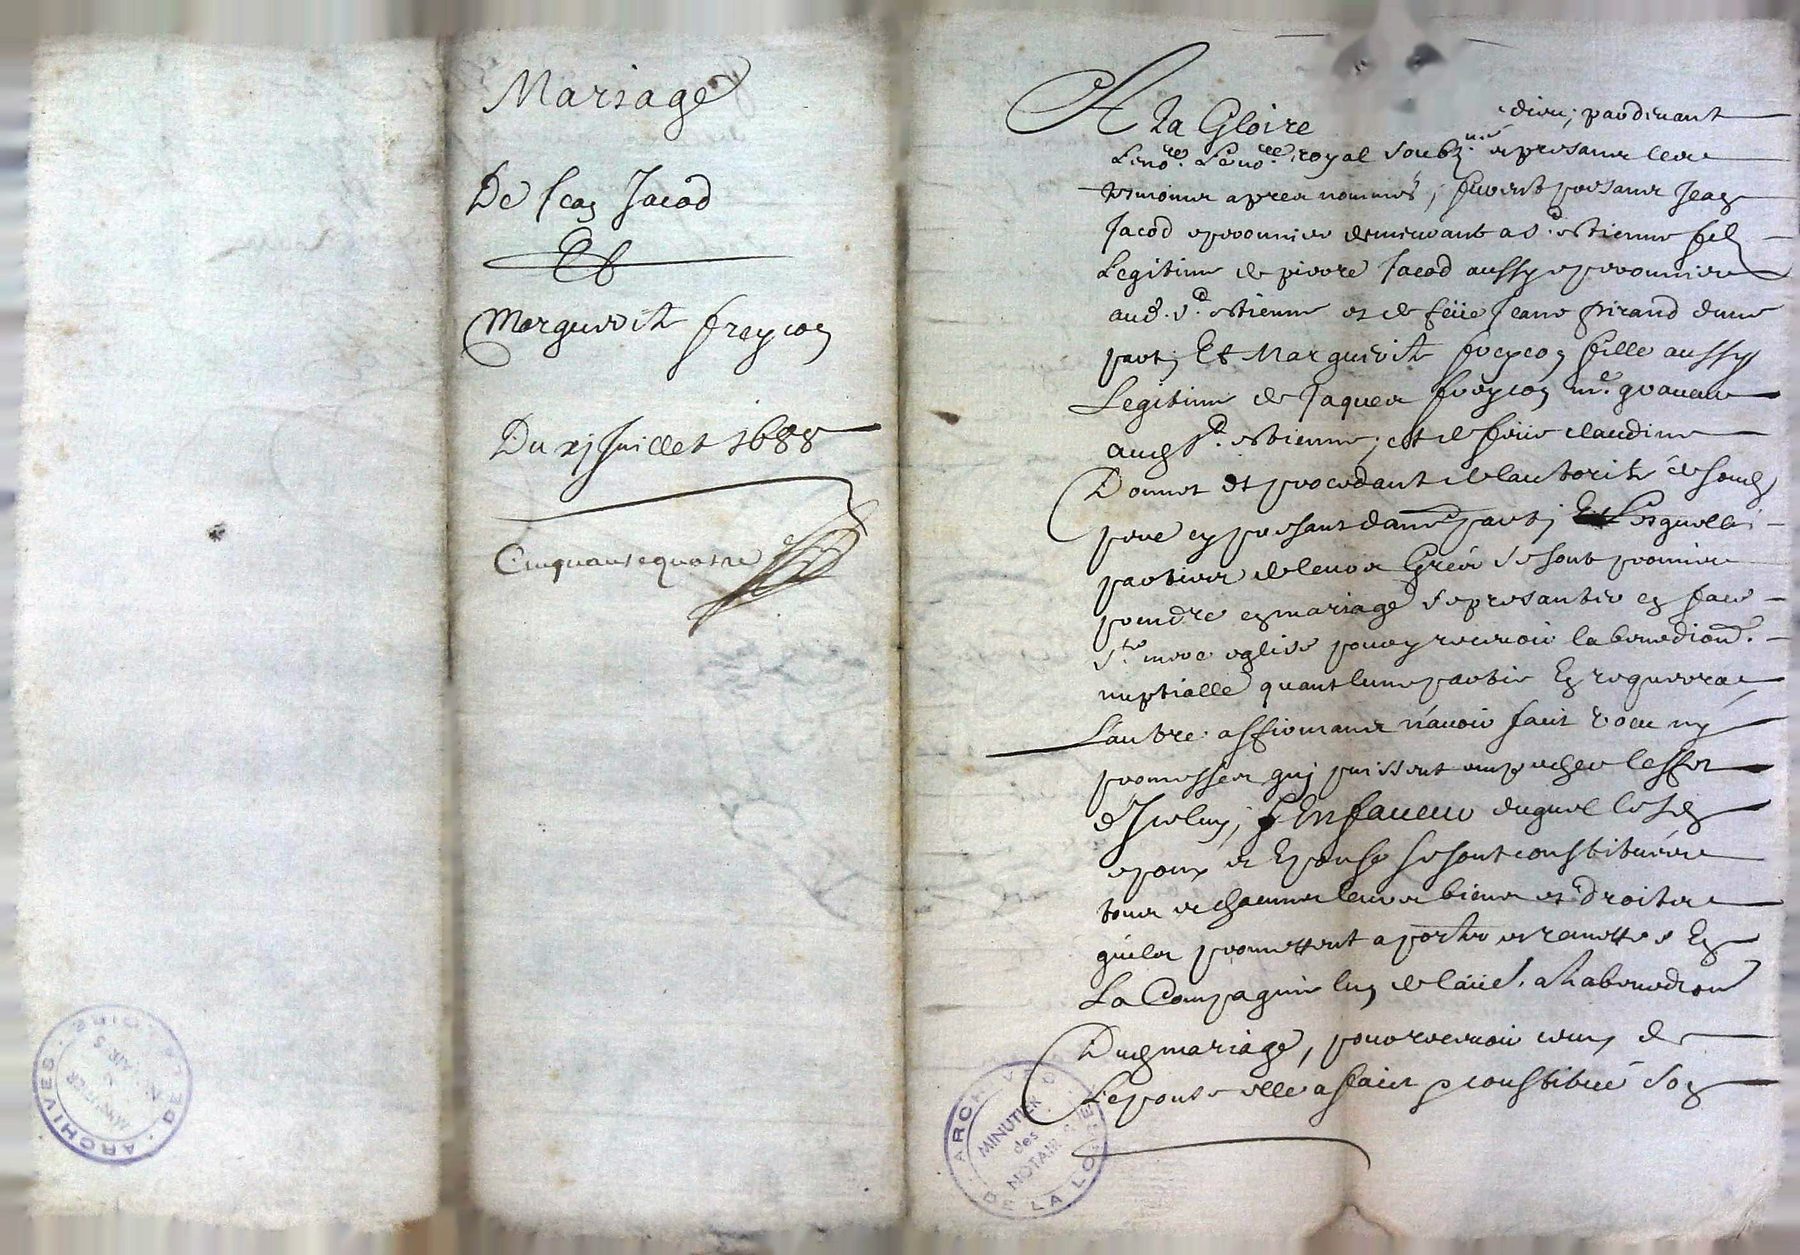 Mariage
De Jean Jacod
Et
Marguerite freycon
Du xj Juillet 1688
Cinquantequatre
A la Gloire dieu; pardevant
Le no.re royal soubz.né et presans les
tesmoins apres nommés, furent presans Jean
Jacod esperonnier demeurant a St. estienne filz
Legitime de pierre Jacod aussy esperonnier
aud. St. estienne et de feüe Jeane Girand dune
part; Et Marguerite freycon fille aussy
Legitime de Jaques freycon me. graveur
aud St. estienne; et de feüe claudine
Donnet et procedant de lautorité de soud
pere cy presant dautre part; Lesquelles
parties de leurs Gréés se sont promis
prendre en mariage se presanter en face
Ste. mere eglise pour y recevoir la benedion.
nuptialle quant lune partie En requerra
Lautre affirmans n'avoir fait voeu ny
promesses quj puissent empecher leffet
d'Jceluy; En faveur duquel lesd
epoux et Epouse se sont constitués
tous et chacuns leurs biens et droits
quils promettent aporter et remettre En
La Compagnie lun de lautre, a la benedion
Dud mariage, pour recevoir ceux de
Lepouse elle a fait et constitué son
ARCHIVES DE LA LOIRE
MINUTIER
des
NOTAIRES
ARCHIVES DE LA LOIRE
MINUTIER
des
NOTAIRES